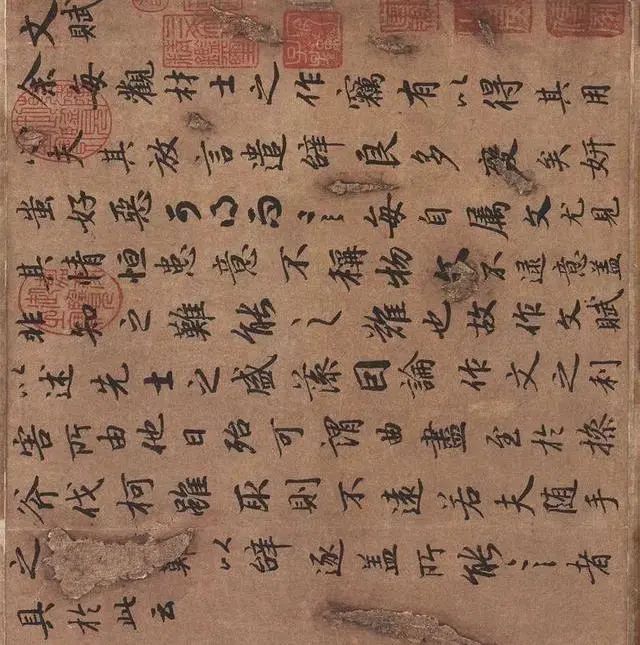 文賦
余每觀材士之作竊有以得其用
心夫其放言遣辭良多變矣妍
蚩好惡可得而言每自属文尤見
其情恒患意不稱物文不逮意盖
非知之難能之難也故作文賦
以述先士之盛藻囙論作文之利
害所由他日殆可謂曲盡至於操
斧伐柯雖取則不遠若夫随手
之難以辭逐盖所能言者
具於此云